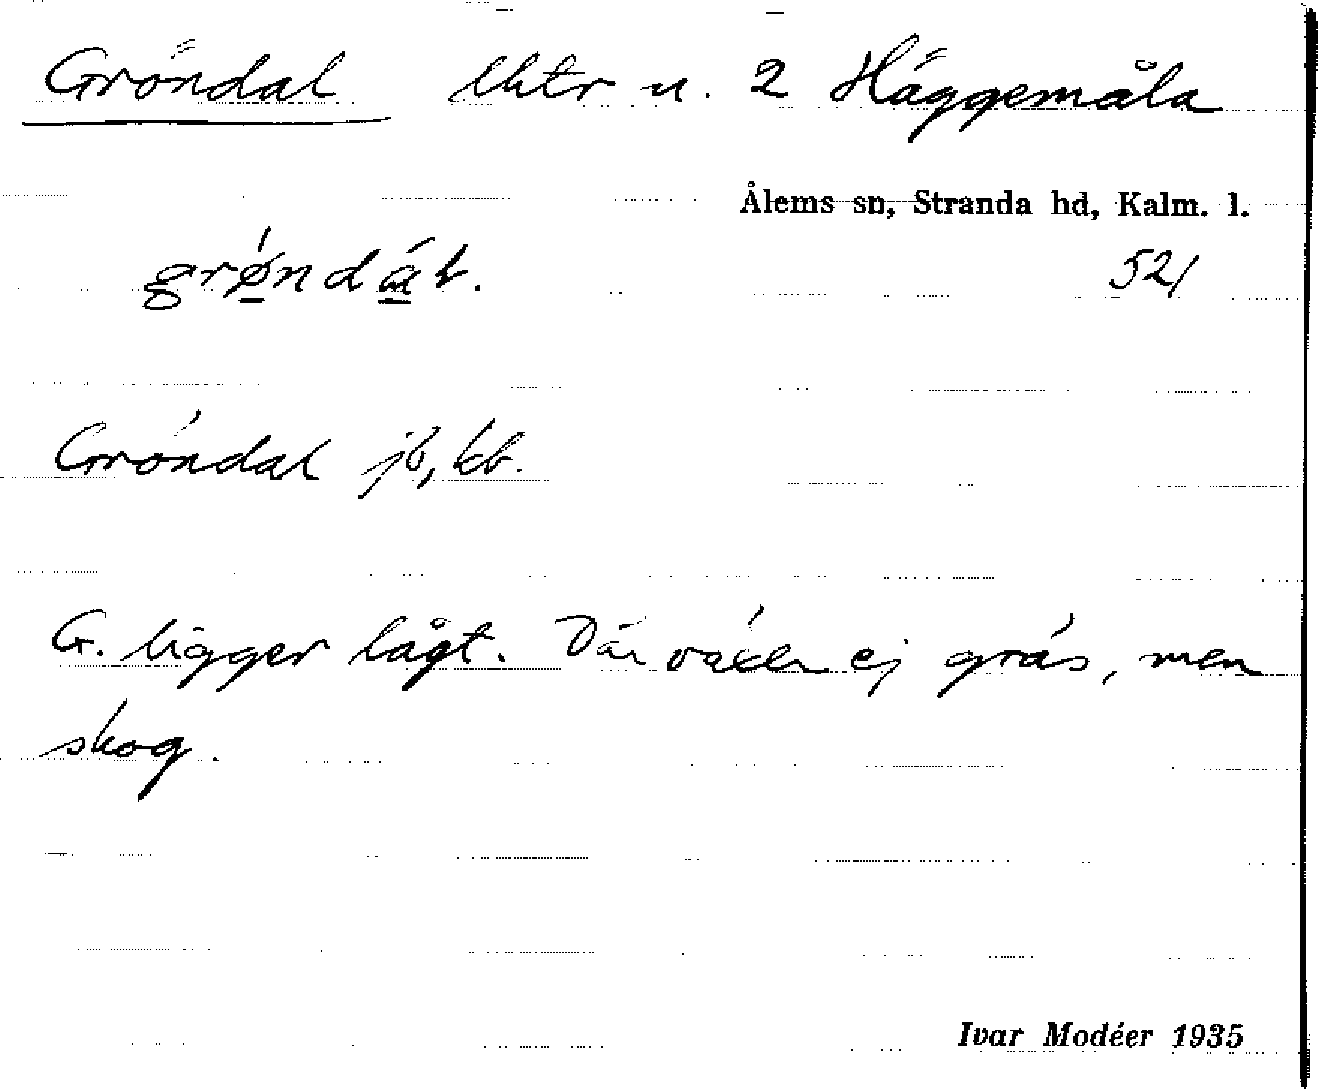 Gröndal lhtr u. 2 Häggemåla
Ålems sn, Stranda hd, Kalm. l.
grǿndát. 521
Gröndal jb, kb.
G. ligger lågt. Där växer ej gräs, men
skog.
Ivar Modéer 1935